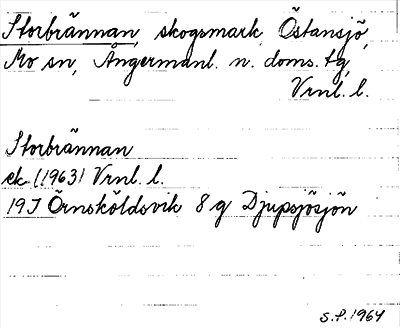 Storbrännan, skogsmark, Östansjö,
Mo sn, Ångermanl. n. doms. tg,
Vrnl. l.
Storbrännan
ek (1963) Vrnl. l.
19J Örnsköldsvik 8 g Djupsjösjön
S.P. 1964